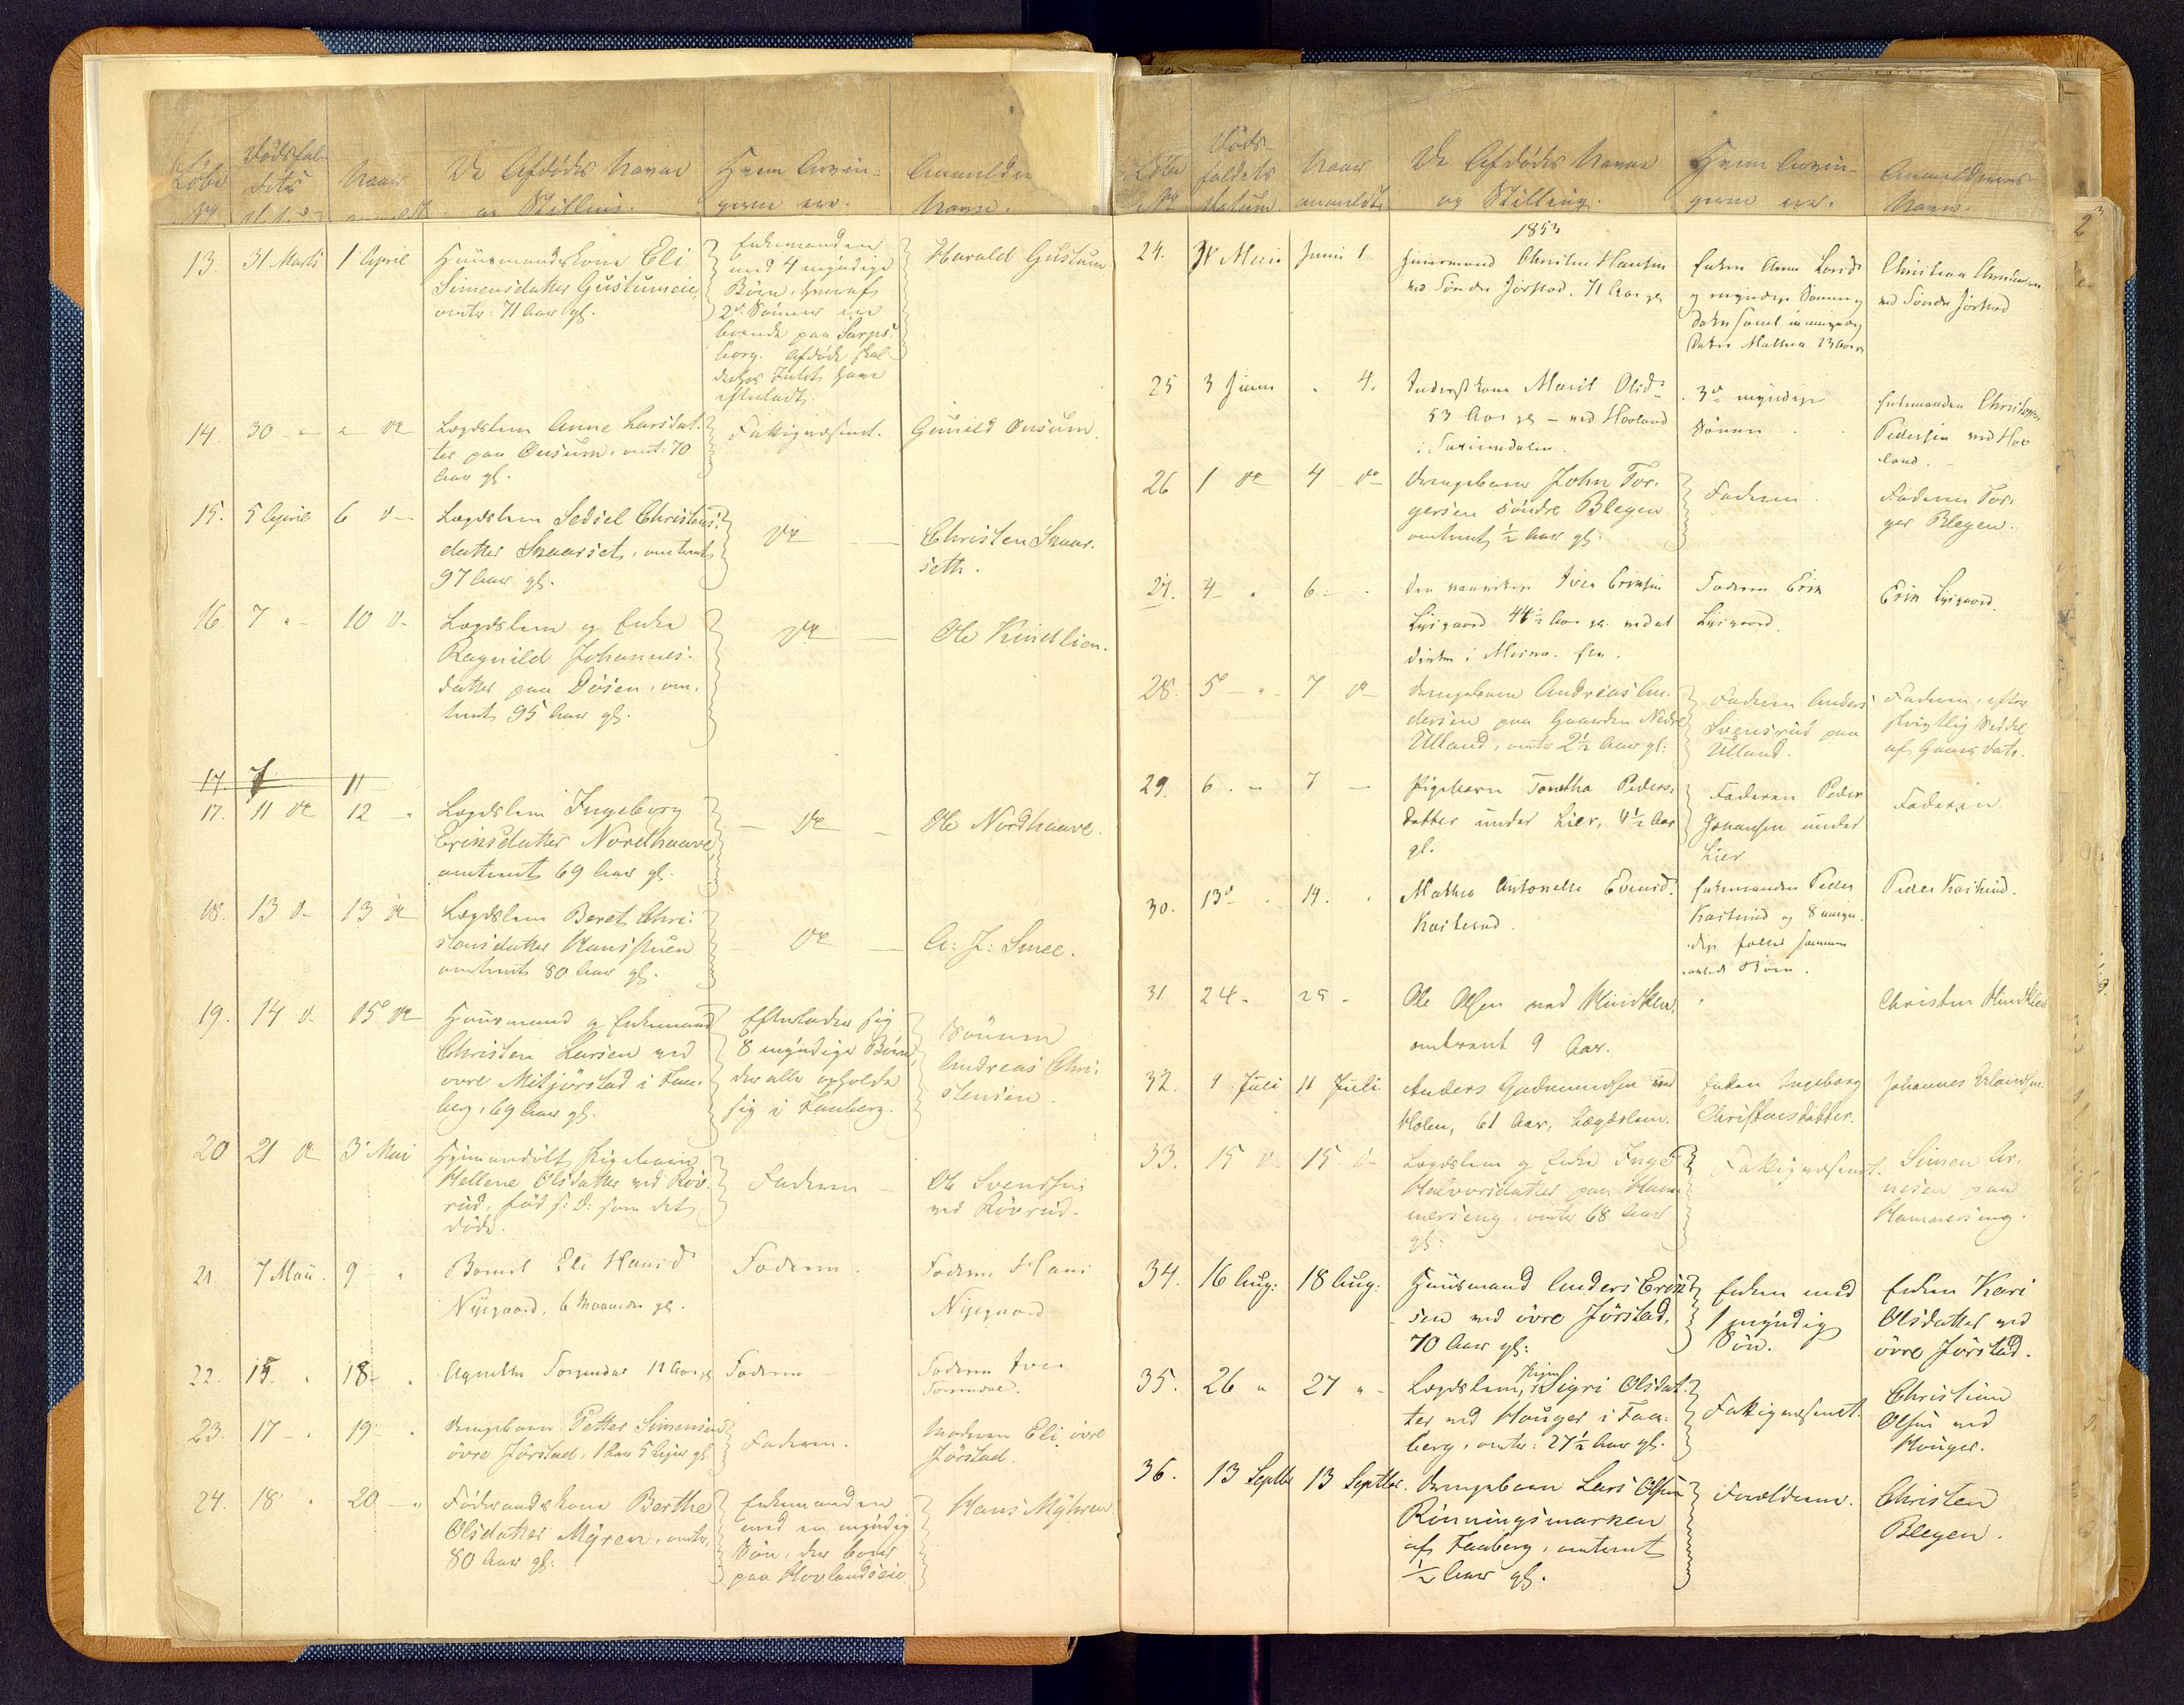 Løbe No
Dødsfal-
dets
Naar
anmeldt
De Afdødes Navne
og Stilling.
Hvem Arvin-
gerne ere.
Anmelder
Navne.
13. 31 Marts 1 April
Huusmandskone Eli
Simensdatter Gustumeie,
omtr: 71 Aar gl.
Enkemanden
med 4 myndige
Børn, hvoraf
2de Sønner ere
boende paa Sarps-
borg. Afdøde skal
intet have
efterladt.
Harald Gustum
14. 30 - " - " do
Lægdslem Anne Larsdat-
ter paa Onsum, omt: 70
Aar gl.
Fattigvæsenet.
Gunild Onsum.
15. 5 April 6 d-
Lægdslem Sedsel Christens-
datter Skaarset, omtrent
97 Aar gl.
do
Christen Skaar-
seth.
16 7 " - 10 d-
Lægdslem og Enke
Ragnild Johannes-
datter paa Døsen, om-
trent 95 Aar gl.
do
Ole Kindlien.
17. 7 11
17. 11 do 12 - "
Lægdslem Ingeborg
Eriksdatter Nordhaave
omtrent 69 Aar gl.
do
Ole Nordhaave.
18. 13 d- 13 do
Lægdslem Beret Chri-
stensdatter Hansstuen
omtrent 80 Aar gl.
do
A: J: Smee.
19. 14 d- 15 do
Huusmand og Enkemand
Christen Larsen ved
øvre Mitjørstad i Faa-
berg, 69 Aar gl.
Efterlader sig
8 myndige Børn,
der alle opholde
sig i Faaberg.
Sønnen
Andreas Chri-
stensen.
20 21 do 3 Mai
Hjemmedøbt Pigebarn
Hellene Olsdatter ved Röv-
rud, født s: D: som det
døde.
Faderen
Ole Svendsen
ved Rövrud.
21. 7 Mai. 9 - "
Barnet Eli Hansd
Nysgaard, 6 Maaneder gl.
Faderen.
Faderen Hans
Nysgaard
22. 15. " 18 - "
Agnethe 12 Aar gl
Faderen
Faderen Iver
23. 17 - " 19 - "
Drengebarn Petter Simensen
övre Jörstad, 1 Aar 5 Uger gl
Faderen.
Moderen Eli övre
Jörstad.
24. 18 " 20 - "
Föderaadskone Berthe
Olsdatter Myren, omtr,
80 Aar gl.
Enkemanden
med en myndig
Søn, der boer
paa Hovlandseie
Hans Myhren
Løbe No
Døds-
faldets
Datum.
Naar
anmeldt
De Afdødes Navne
og Stilling.
Hvem Arvin-
gerne ere.
Anmeldernes
Navne.
1853
24. 31 Mai Juni 1
Huusmand Christen Hansen
ved Søndre Jørstad, 71 Aar gl
Enken Anne Larsd
og myndige Sønner og
Døtre samt umyndig
Datter Mathea 23 Aar gl
Christian Christensen
ved Søndre Jørstad
25 3 Juni " 4.
Inderstkone Marit Olsd-
53 Aar gl - ved Hovland
i Saxumdalen.
3de myndige
Sønner
Enkemanden Christopher
Pedersen ved Hov-
land.
26 1 do 4 do
Drengebarn John Tor-
gersen søndre Blegen
omtrent ½ Aar gl.
Faderen.
Faderen Tor-
ger Blegen.
27. 4 - " 6 - "
Iver Eriksen
Lysgaard 44½ Aar gl. ved at
drukne i Mesna.
Faderen Erik
Lysgaard.
Erik Lysgaard.
28. 5 - " - 7 d-
Drengebarn Andreas An-
dersen paa Gaarden Nedre
Ulland, omtr 2½ Aar gl:
Faderen Anders
Svensrud paa
Ulland.
Faderen, efter
skriftlig Seddel
af Gaars Dato.
29. 6. - 7 -
Pigebarn Tonetha Peders-
datter under Lier, 4½ Aar
gl.
Faderen Peder
Johansen under
Lier
Faderen.
30. 13d " 14. "
Mathea Antonette Evensd.
Kasterud.
Enkemanden Peder
Kasterud og 8 umyn-
dige fælles sammen
avlede Børn.
Peder Kasterud.
31 24 - 25 -
Ole Olsen ved Kindlien,
omtrent 9 Aar.
"
Christen Kindlien
32. 9 Juli 11 Juli
Anders Gudmundsen ved
Holen, 61 Aar, Lægdslem.
Enken Ingeborg
Christensdatter.
Johannes Erlandsen
33. 15 d- 15 d-
Lægdslem og Enke Inge
Halvorsdatter paa Ham-
merseng, omtr 68 Aar
gl:
Fattigvæsenet.
Simen Ar-
nesen paa
Hammerseng.
34. 16 Aug: 18 Aug:
Huusmand Anders Erik-
sen ved øvre Jörstad,
70 Aar gl:
Enken med
1 myndig
Søn.
Enken Kari
Olsdatter ved
övre Jörstad.
35. 26 " 27 " -
Lægdslem, Pigen Sigri Olsdat-
ter ved Houger i Faa-
berg, omtr: 27½ Aar gl.
Fattigvæsenet.
Christian
Olsen ved
Houger.
36. 13 Septbr 13 Septbr.
Drengebarn Lars Olsen
Rönningsmarken
af Faaberg, omtrent
½ Aar gl.
Forældrene.
Christen
Blegen.